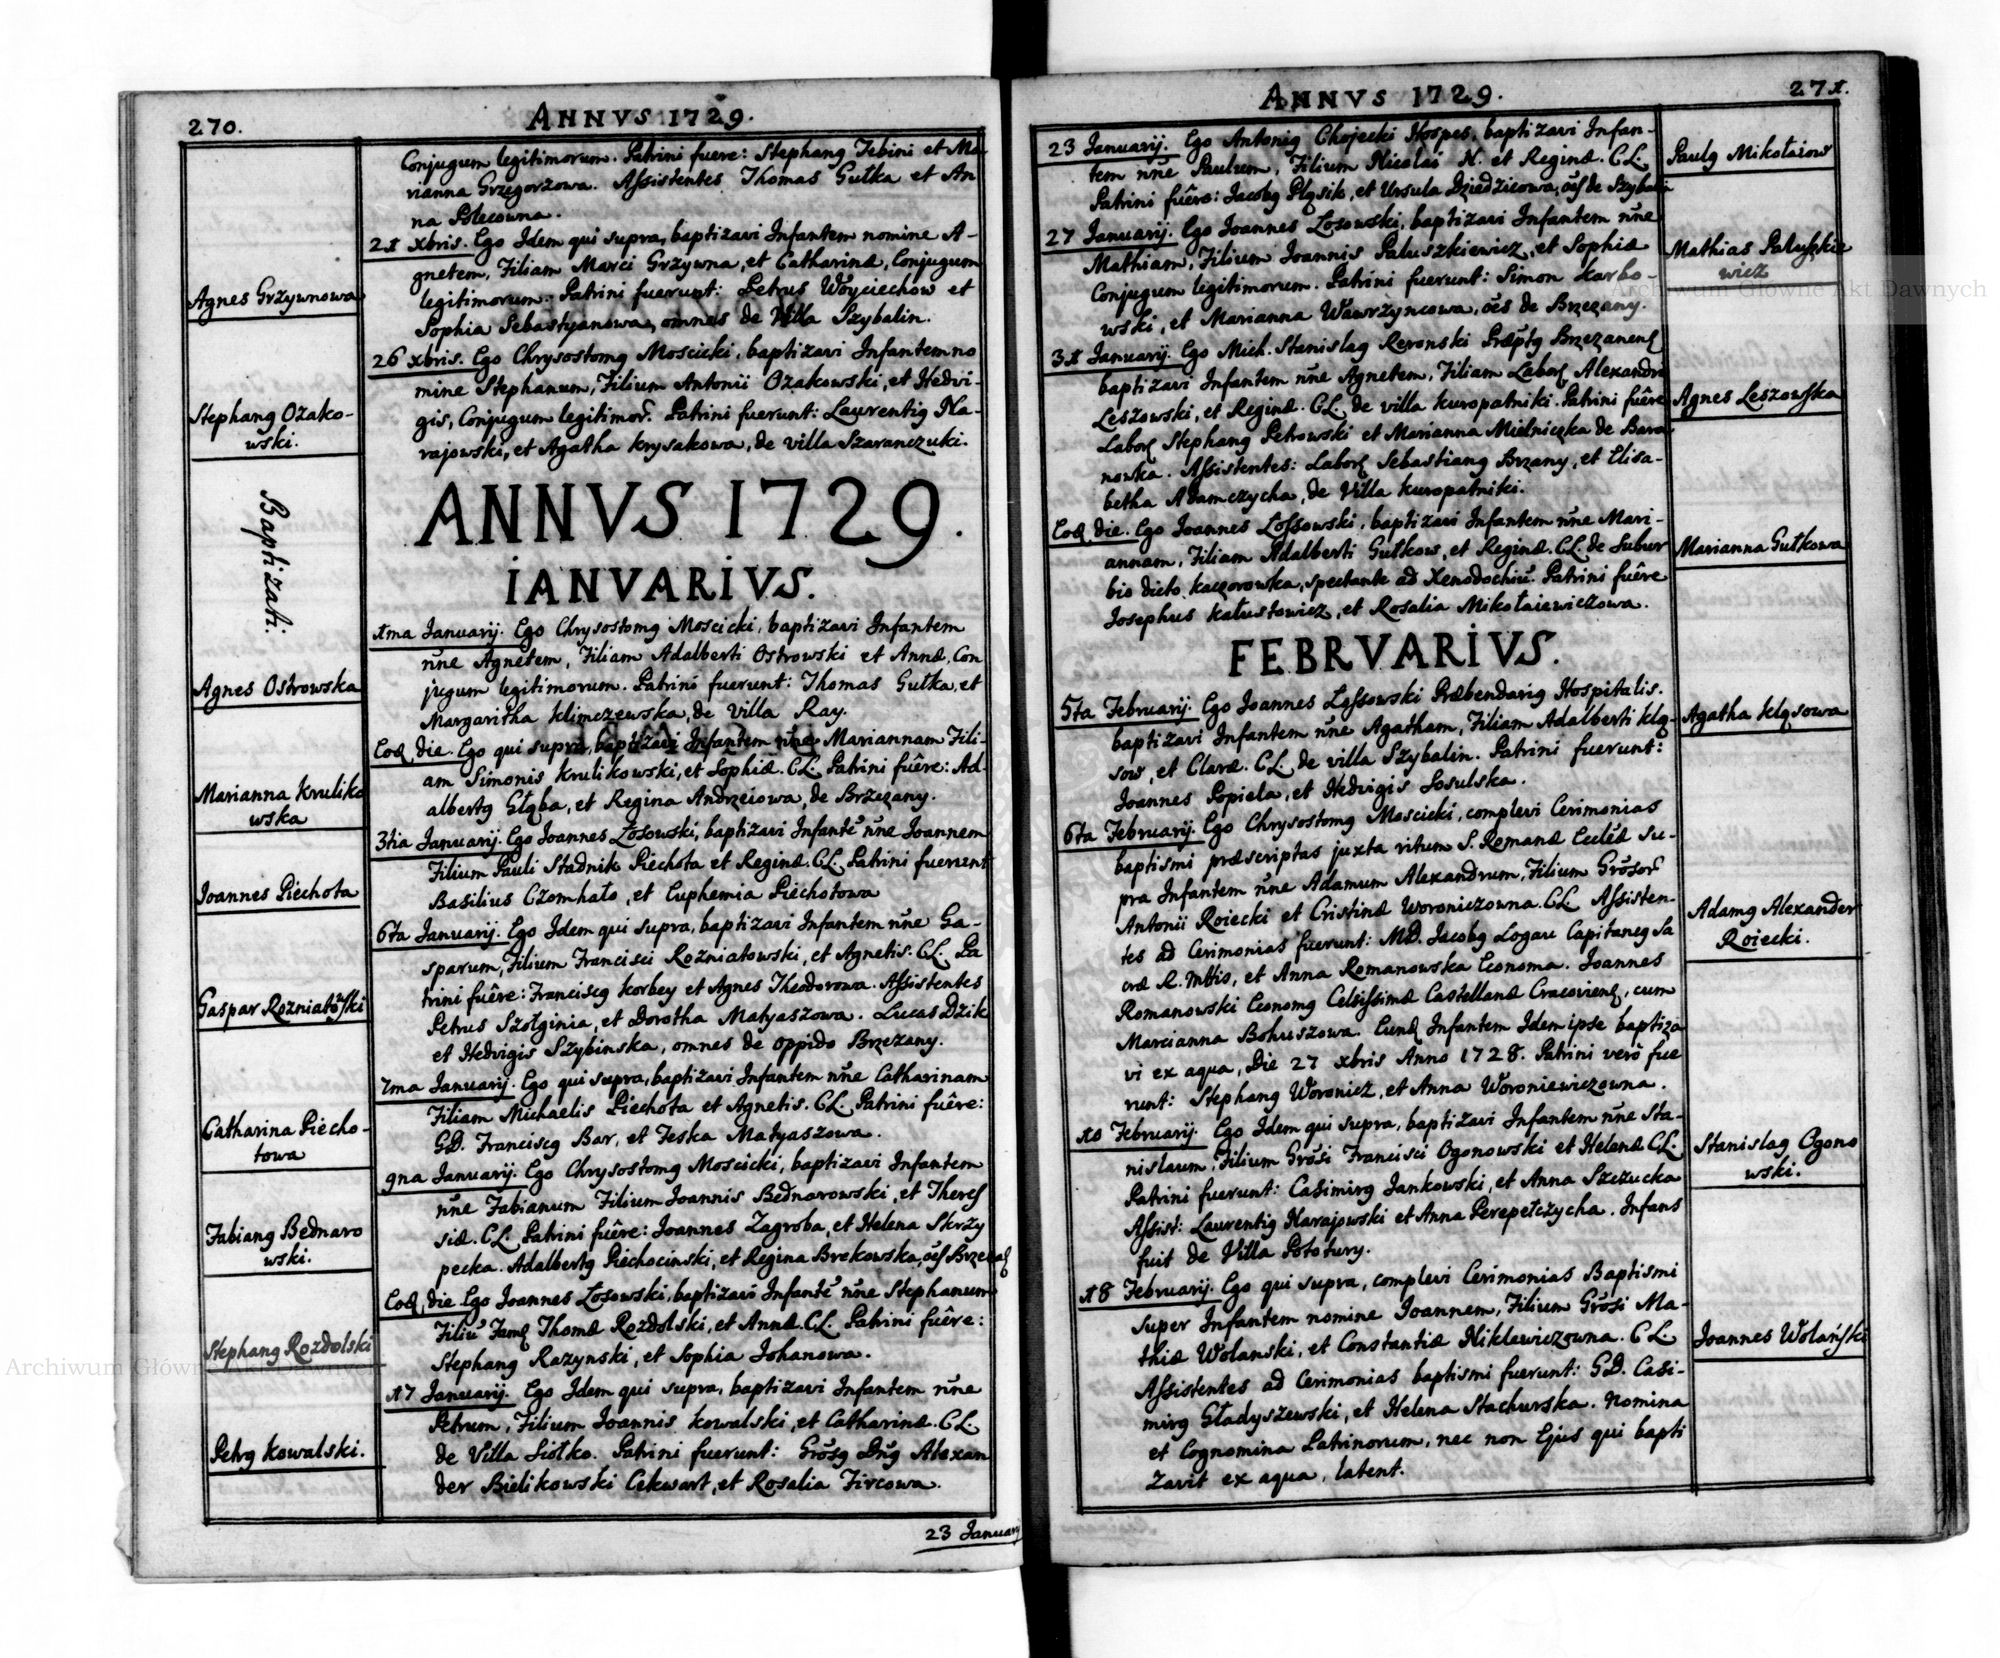 270.
ANNVS 1729.
Conjugum legitimorum. Patrini fuere: Stephang Tebini et Ma
rianna Grzegorzowa. Assistentes Thomas Gutka et An
na Polecowna.
21 xbris. Ego Idem qui supra, baptizavi Infantem nomine A-
gnetem, Filiam Marci Grzywna, et Catharinæ, Conjugum
legitimorum. Patrini fuerunt: Petrus Woyciechow et
Sophia Sebastyanowa, omnes de Villa Szybalin.
Agnes Grzywnowa
26 xbris. Ego Chrysostomg Moscicki, baptizavi Infantem no
mine Stephanum, Filium Antonii Ozakowski, et Hedvi-
gis, Conjugum legitimor. Patrini fuerunt: Laurentig Na-
rajowski, et Agatha Krysakowa, de villa Szaranczuki.
Stephang Ozako-
wski.
ANNVS 1729.
IANVARIVS.
Baptizati.
1ma Januarij. Ego Chrysostomg Moscicki, baptizavi Infantem
nne Agnetem, Filiam Adalberti Ostrowski et Annæ, Con
jugum legitimorum. Patrini fuerunt: Thomas Gutka, et
Margaritha Klimczewska, de Villa Ray.
Agnes Ostrowska
Eod. die. Ego qui supra, baptizavi Infantem nne Mariannam Fili-
am Simonis Krulikowski, et Sophiæ. CL. Patrini fuêre: Ad-
albertg Głąba, et Regina Andrzeiowa, de Brzezany.
Marianna Kruliko
wska
3tia Januarij. Ego Joannes Łosowski, baptizavi Infantē nne Joannem
Filium Pauli Stadnik Piechota et Reginæ. CL. Patrini fuerunt
Basilius Czomhało, et Euphemia Piechotowa
Joannes Piechota
6ta Januarij. Ego Idem qui supra, baptizavi Infantem nne Ga-
sparum, Filium Francisci Rozniatowski, et Agnetis. CL. Pa
trini fuêre: Franciscg Korbey et Agnes Theodorowa. Assistentes
Petrus Szołginia, et Dorotha Matyaszowa. Lucas Dzik
et Hedvigis Szybinska, omnes de oppido Brzezany.
Gaspar Rozniatowski
7ma Januarij. Ego qui supra, baptizavi Infantem nne Catharinam
Filiam Michaelis Piechota et Agnetis. CL. Patrini fuêre:
GD. Franciscg Bar, et Teska Matyaszowa.
Catharina Piecho-
towa
9na Januarij. Ego Chrysostomg Moscicki, baptizavi Infantem
nne Fabianum Filium Joannis Bednarowski, et Theres
siæ. CL. Patrini fuêre: Joannes Zagroba, et Helena Skrzy
pecka. Adalbertg Piechocinski, et Regina Brekowska, oēs Brzezan
Fabiang Bednaro
wski.
Eod. die. Ego Joannes Łosowski, baptizavi Infantē nne Stephanum
Filiū Fam Thomæ Rozdolski, et Annæ. CL. Patrini fuêre:
Stephang Razynski, et Sophia Johanowa.
Stephang Rozdolski
17 Januarij. Ego Idem qui supra, baptizavi Infantem nne
Petrum, Filium Joannis Kowalski, et Catharinæ. CL.
de Villa Siołko. Patrini fuerunt: Grosg Dng Alexan
der Bielikowski Cekwart, et Rosalia Fircowa.
Petrg Kowalski.
23 Januarij
ANNVS 1729.
271.
23 Januarij. Ego Antonig Chojecki Hospes, baptizavi Infan-
tem nne Paulum, Filium Nicolai N. et Reginæ. CL.
Patrini fuêre: Jacobg Ptąsik, et Ursula Dziedzicowa, oēs de Szybalin
Paulg Mikołaiow
27 Januarij. Ego Joannes Łosowski, baptizavi Infantem nne
Mathiam, Filium Joannis Paluszkiewicz, et Sophiæ
Conjugum legitimorum. Patrini fuerunt: Simon Karbo-
wski, et Marianna Wawrzyncowa, oēs de Brzezany.
Mathias Paluszkie
wicz
31 Januarij. Ego Mich. Stanislag Reronski Præptg Brzezanen
baptizavi Infantem nne Agnetem, Filiam Labor Alexandri
Leszowski, et Reginæ. CL. de villa Kuropatniki. Patrini fuêre
Labor Stephang Petrowski et Marianna Mielniczka de Bara
nowka. Assistentes: Labor Sebastiang Brzany, et Elisa-
betha Adamczycha, de Villa Kuropatniki.
Agnes Leszowska
Eod. die. Ego Joannes Łossowski, baptizavi Infantem nne Mari-
annam, Filiam Adalberti Gutkow, et Reginæ. CL. de Subur
bio dicto Kaczorowka, spectante ad Xenodochiū. Patrini fuêre
Josephus Kałustowicz, et Rosalia Mikołaiewiczowa.
Marianna Gutkowa
FEBRVARIVS.
5ta Februarij. Ego Joannes Łossowski Præbendarig Hospitalis.
baptizavi Infantem nne Agatham, Filiam Adalberti Klą-
sow, et Claræ. CL. de villa Szybalin. Patrini fuerunt:
Joannes Popiela, et Hedvigis Sosulska.
Agatha Kląsowa
6ta Februarij. Ego Chrysostomg Moscicki, complevi Cerimonias
baptismi præscriptas juxta ritum S. Romanæ Eccleæ su-
pra Infantem nne Adamum Alexandrum, Filium Grosor
Antonii Roiecki et Cristinæ Woroniczowna. CL. Assisten-
tes ad Cerimonias fuerunt: MD. Jacobg Logau Capitaneg Sa
cræ R. Mttis, et Anna Romanowska Economa. Joannes
Romanowski Economg Celsissimæ Castellanæ Cracovien, cum
Marcianna Bohuszowa. Eund Infantem Idem ipse baptiza
vi ex aqua, Die 27 xbris Anno 1728. Patrini verò fue
runt: Stephang Woronicz, et Anna Woroniewiczowna.
Adamg Alexander
Roiecki.
10 Februarij. Ego Idem qui supra, baptizavi Infantem nne Sta-
nislaum, Filium Grosi Francisci Ogonowski et Helenæ CL.
Patrini fuerunt: Casimirg Jankowski, et Anna Szczucka
Assist: Laurentig Narajowski et Anna Perepełczycha. Infans
fuit de Villa Pototury.
Stanislag Ogono
wski.
18 Februarij. Ego qui supra, complevi Cerimonias Baptismi
super Infantem nomine Joannem, Filium Grosi Ma-
thiæ Wolanski, et Constantiæ Niklewiczowna. CL.
Assistentes ad Cerimonias baptismi fuerunt: GD. Casi-
mirg Gładyszewski, et Helena Stachurska. Nomina
et Cognomina Patrinorum, nec non Ejus qui bapti
zavit ex aqua, latent.
Joannes Wolański
Archiwum Główne Akt Dawnych
Archiwum Główne Akt Dawnych